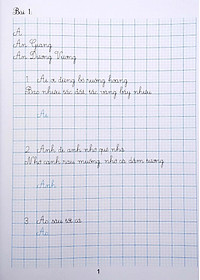 Bài 1.
A
An Giang
An Dương Vương
1 Ai ơi đừng bỏ ruộng hoang
Bao nhiêu tấc đất, tấc vàng bấy nhiêu
Ai
2 Anh đi anh nhớ quê nhà
Nhớ canh rau muống, nhớ cà dầm tương
Anh
3 Ao sâu tốt cá
Ao
1